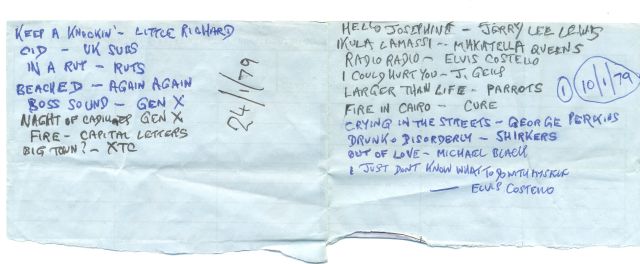 KEEP A KNOCKIN' - LITTLE RICHARD
CID - UK SUBS
IN A RUT - RUTS
BEACHED - AGAIN AGAIN
BOSS SOUND - GEN X
NIGHT OF CADILLACS GEN X
FIRE - CAPITAL LETTERS
BIG TOWN? - XTC
24/1/79
HELLO JOSEPHINE - JERRY LEE LEWIS
IKULA LAMASSI - MAHATELLA QUEENS
RADIO RADIO - ELVIS COSTELLO
I COULD HURT YOU - J. GEILS
LARGER THAN LIFE - PARROTS
FIRE IN CAIRO - CURE
CRYING IN THE STREETS - GEORGE PERKINS
DRUNK & DISORDERLY - SHIRKERS
OUT OF LOVE - MICHAEL BLACK
I JUST DON'T KNOW WHAT TO DO WITH MYSELF
— ELVIS COSTELLO
1 10/1/79